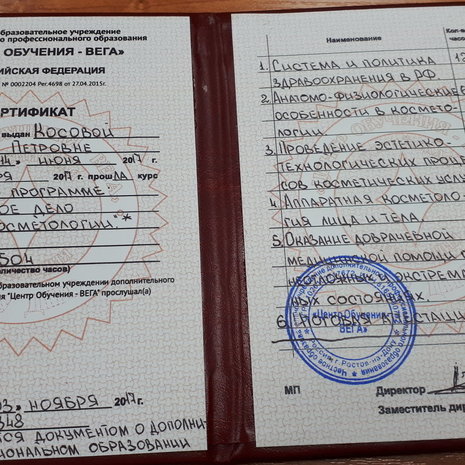 образовательное учреждение
о профессионального образования
ОБУЧЕНИЯ - ВЕГА»
ИЙСКАЯ ФЕДЕРАЦИЯ
№ 0002204 Рег.4698 от 27.04.2015г.
СЕРТИФИКАТ
выдан КОСОВОЙ
ПЕТРОВНЕ
14 » ИЮНЯ 2017 г.
2017 г. прошЛА курс
ПРОГРАММЕ:
ОЕ ДЕЛО
КОСМЕТОЛОГИИ."*
504
(количество часов)
образовательном учреждении дополнительного
"Центр Обучения - ВЕГА" прослушал(а)
03 » НОЯБРЯ 2017
348
ТСЯ ДОКУМЕНТОМ О ДОПОЛНИ
ИОНАЛЬНОМ ОБРАЗОВАНИИ
Наименование
Кол-в
часо
1. СИСТЕМА И ПОЛИТИКА
ЗДРАВООХРАНЕНИЯ В РФ
2. АНАТОМО-ФИЗИОЛОГИЧЕСКИЕ
ОСОБЕННОСТИ В КОСМЕТО-
ЛОГИИ
3. ПРОВЕДЕНИЕ ЭСТЕТИКО-
ТЕХНОЛОГИЧЕСКИХ ПРОЦЕС
СОВ КОСМЕТИЧЕСКИХ УСЛУГ
4. АППАРАТНАЯ КОСМЕТОЛО
ГИЯ ЛИЦА И ТЕЛА.
5. ОКАЗАНИЕ ДОВРАЧЕБНОЙ
МЕДИЦИНСКОЙ ПОМОЩИ
НЕОТЛОЖНЫХ И ЭКСТРЕМ
НЫХ СОСТОЯНИЯХ
6. ИТОГОВАЯ АТТЕСТАЦИ
«Центр Обучения
ВЕГА»
Россия г. Ростов-на-Дону
МП
Директор
Заместитель дир